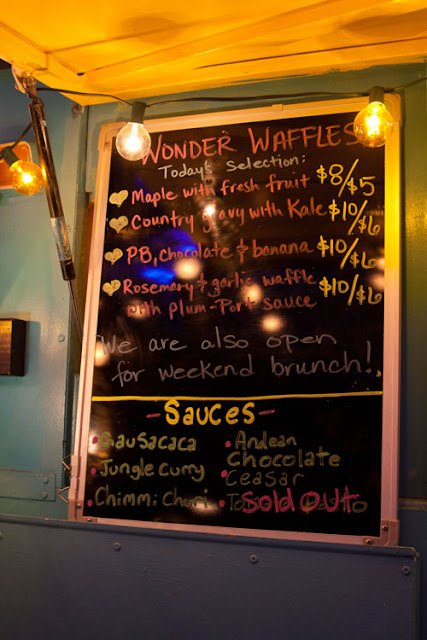 Wonder Waffles
Today's Selection:
Maple with fresh fruit $8/$5
Country gravy with Kale $10/$6
PB, chocolate & banana $10/$6
Rosemary & garlic waffle $10/$6
with plum-Port sauce
We are also open
for weekend brunch!
- Sauces -
Guasacaca
Jungle Curry
Chimmi Churi
Andean
Chocolate
Ceasar
Sold Out